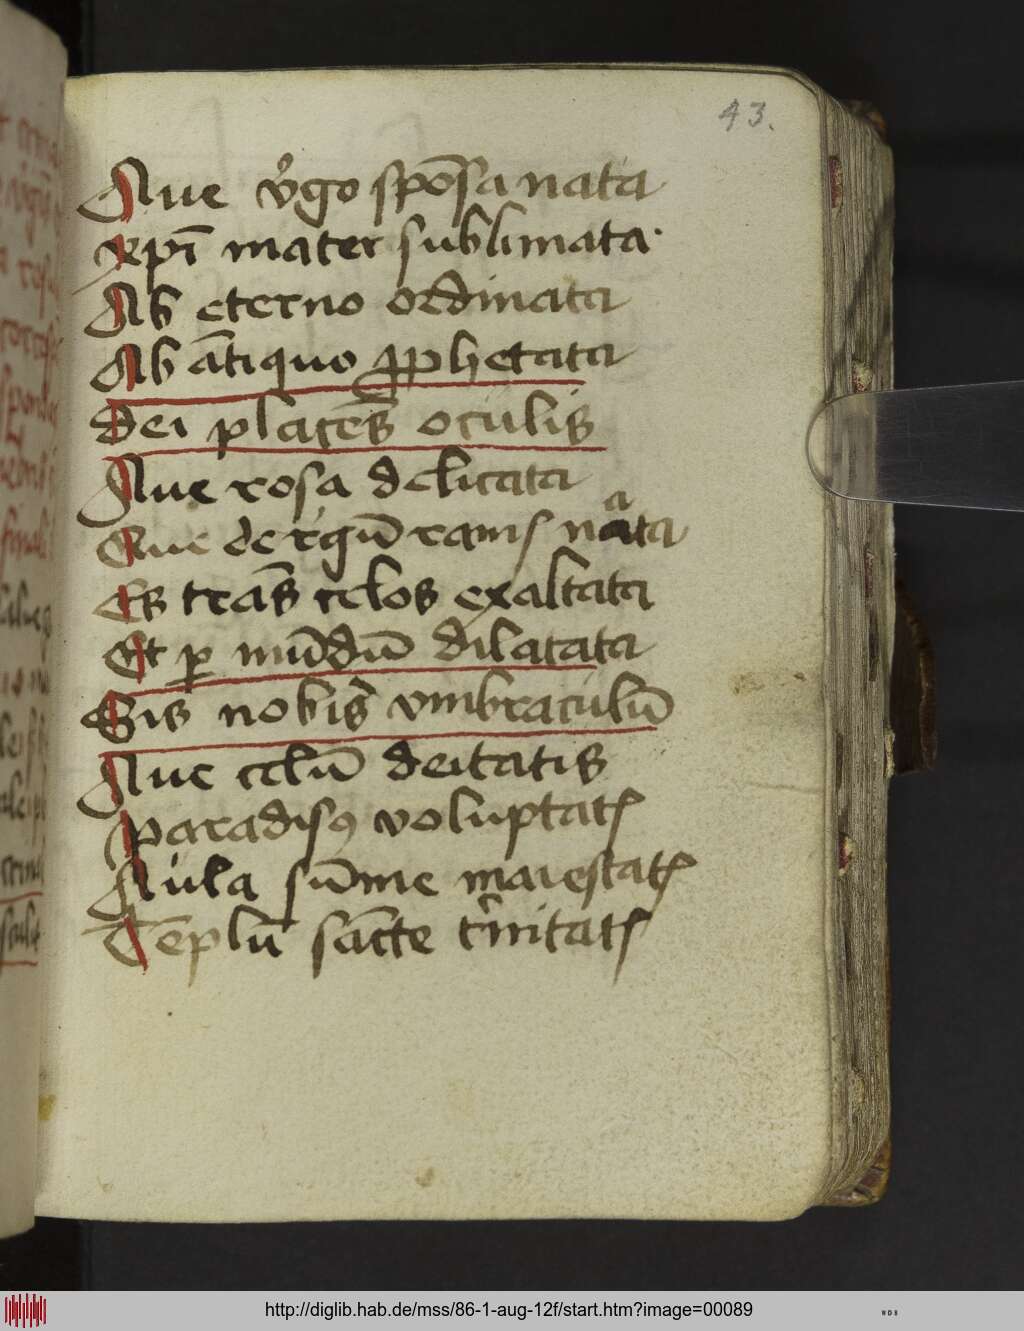 43.
Aue v̓go spōsa nata
xpī mater sublimata·
Ab eterno ordinata
Ab ātiquo ꝓphetata
dei placēs oculis
Aue rosa delicata
Que de rigū ramis nata
Es trās celos exaltata
Et ꝑ mūdū dilatata
Sis nobis vmbraculū
Aue celū deitatis
paradisꝰ voluptatꝭ
Aula sūme maiestatꝭ
Tēplū sācte tⁱnitatꝭ
http://diglib.hab.de/mss/86-1-aug-12f/start.htm?image=00089